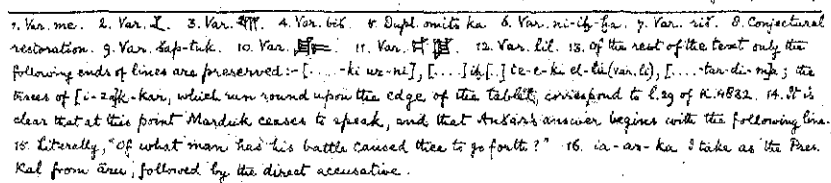 1. Var. me. 2. Var. 3. Var. 4. Var. bit. 5. Dupl. omits ka 6. Var. ni-ih-ga. 7. Var. rit. 8. Conjectural
restoration. 9. Var. šap-tuk. 10. Var. 11. Var. 12. Var. lil. 13. Of the rest of the text only the
following ends of lines are preserved:- [.... -ki uz-ni], [....] ik [..] te-e-ki el-lu (var. li), [.... -tar-di-ma; the
traces of [i-za]k-kar, which run round upon the edge of the tablet, correspond to l. 29 of K. 4832. 14. It is
clear that at this point Marduk ceases to speak, and that Anšar's answer begins with the following line.
15. Literally, "Of what man has his battle caused thee to go forth?" 16. ia-ar-ka I take as the Pres.
Kal from âru, followed by the direct accusative.